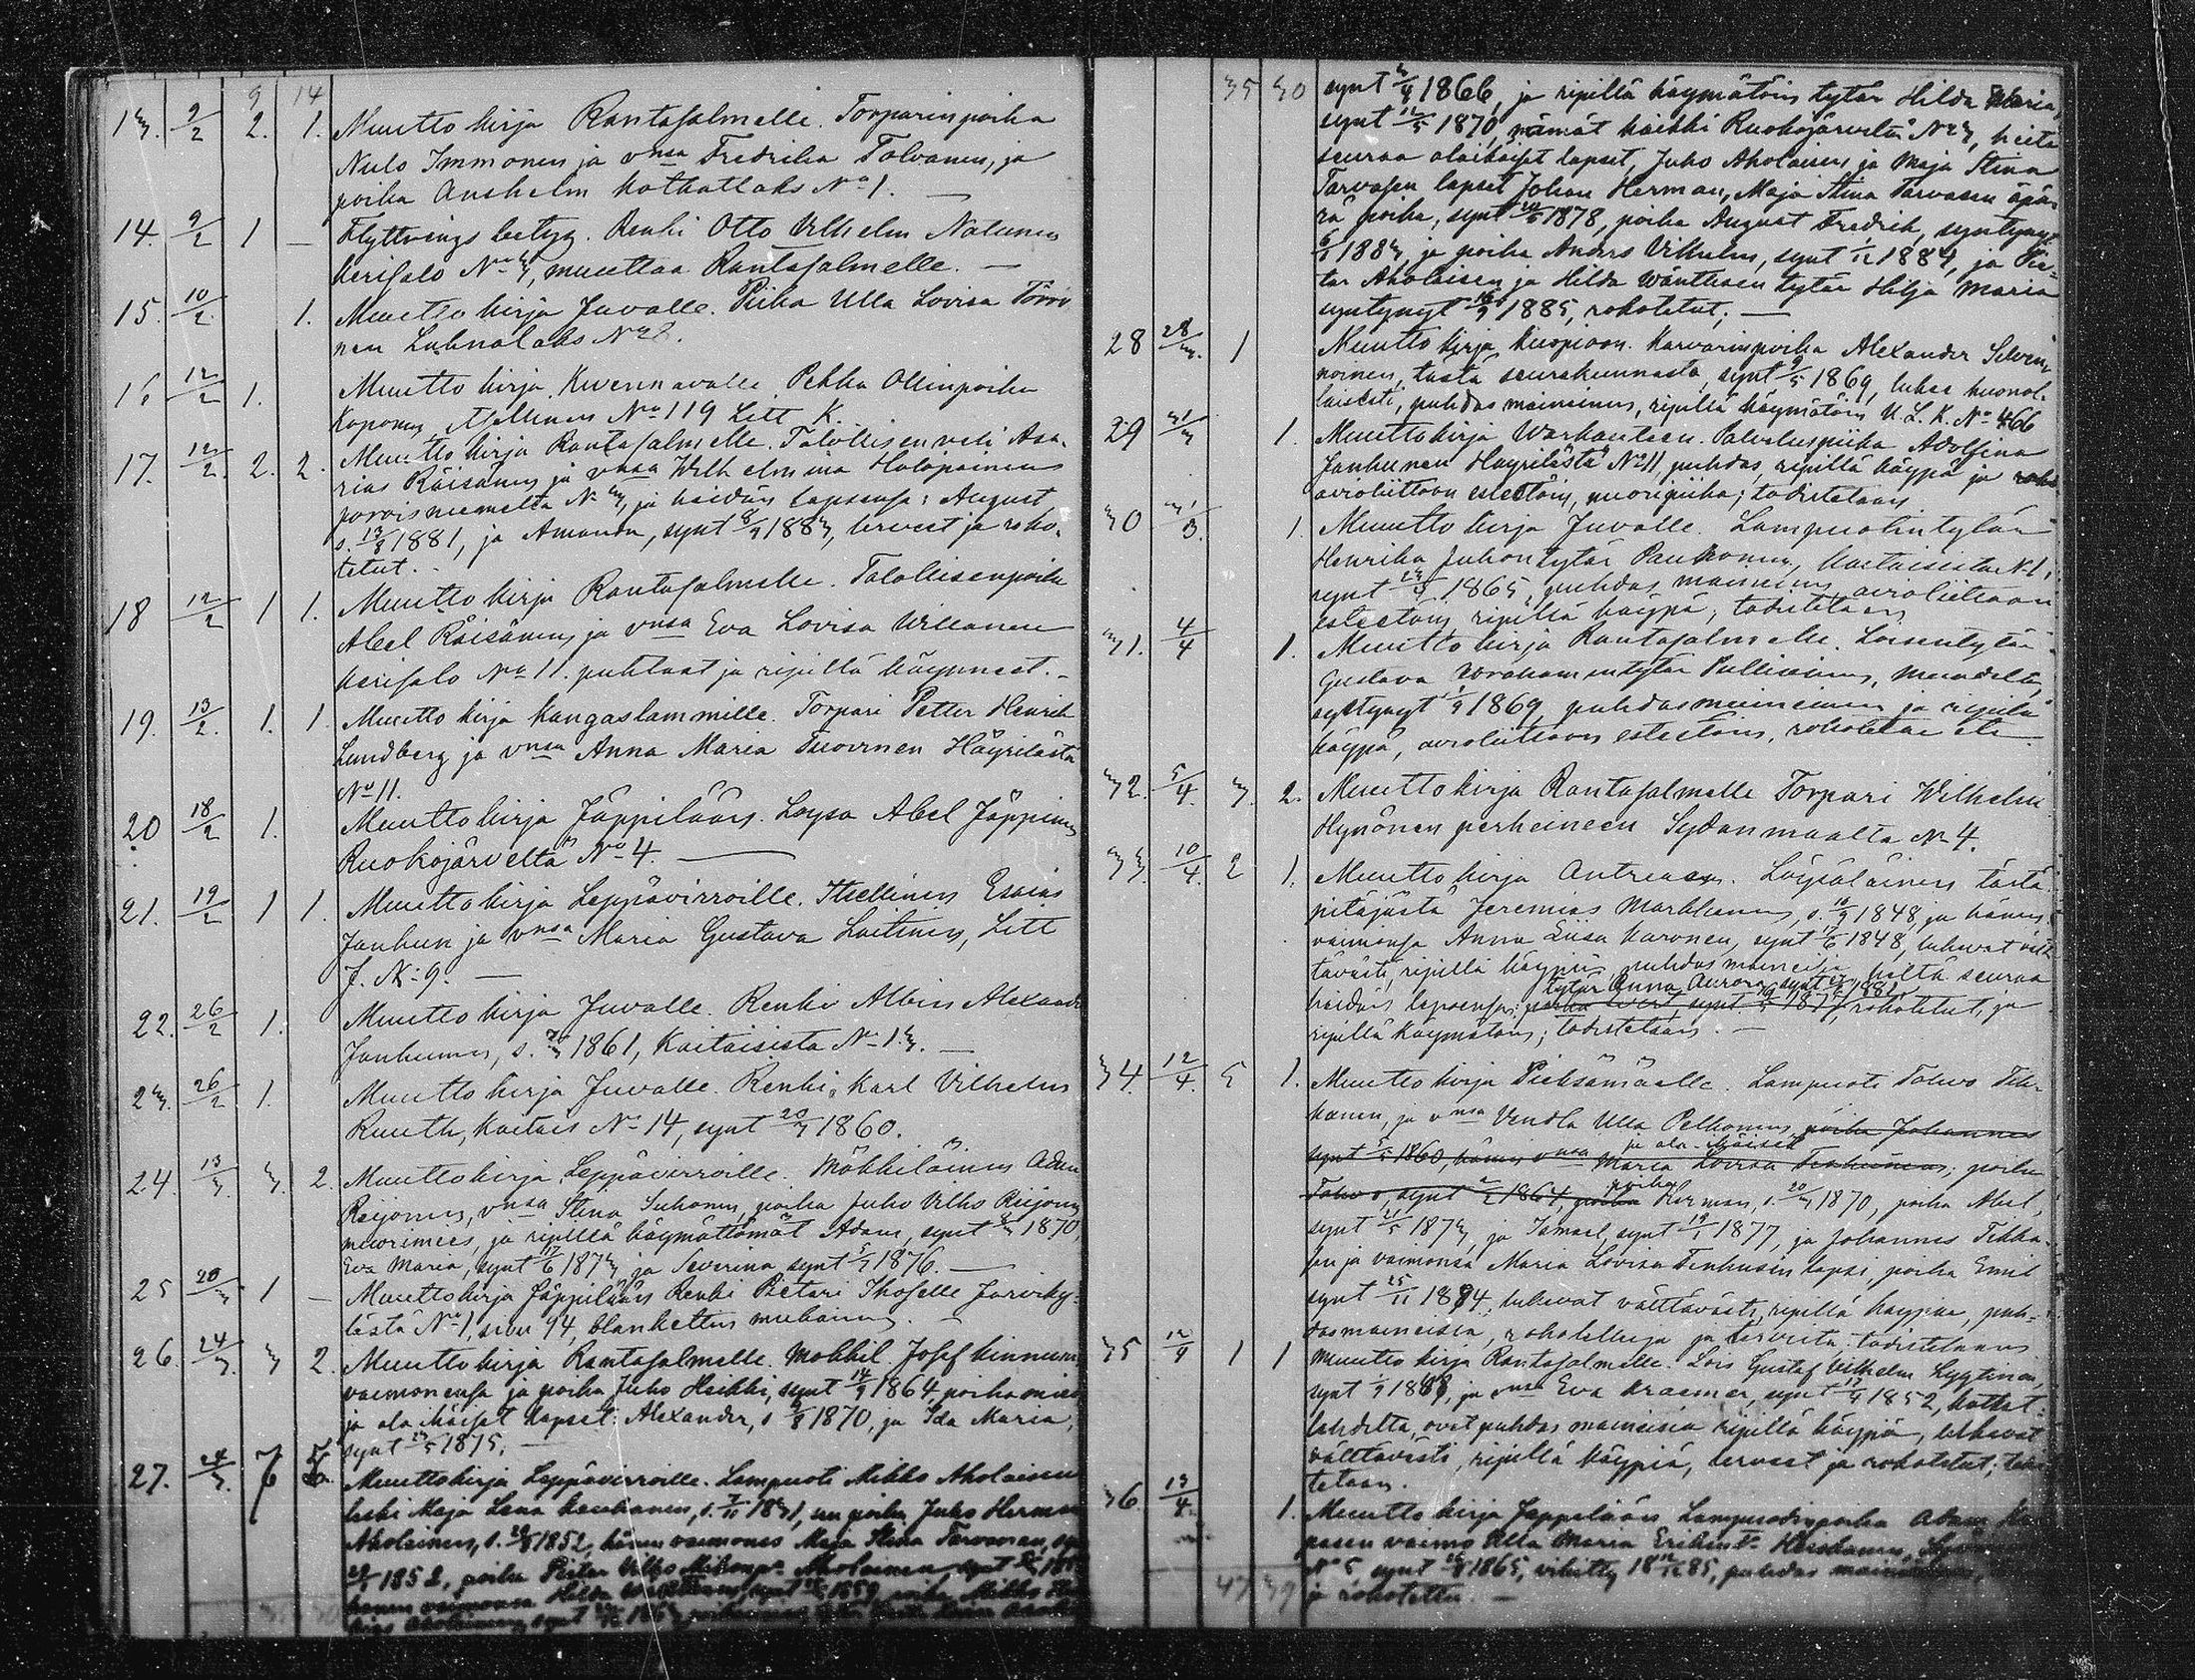 9 14
13. 9/2 2. 1. Muutto kirja Rantasalmelle. Torparinpoika
Nulo Immonen ja vnsa Fredrika Tolvanen, ja
poika Anshelm Kotkatlaks No 1. —
14. 9/2 1 — Flyttnings betyg. Renki Otto Vilhelm Natunen
Kerisalo No 3, muuttaa Rantasalmelle. —
15. 10/2 1. Muutto kirja Juvalle. Piika Ulla Lovisa
nen Luhnalaks No 2.
16 12/2 1. Muutto kirja Pekka Ollinpoika
Koponen, No 119 Litt K.
17. 12/2. 2. 2. Muutto kirja Rantasalmelle. Talollisen veli Asa-
rias Räisänen ja vnsa Wilhelmiina Holopainen
No 3, ja heidän lapsensa: August
s. 13/8 1881, ja Amanda, synt 8/9 1883, terveet ja roko-
tetut. -
18 12/2 1 1. Muutto kirja Rantasalmelle. Talollisenpoika
Abel Räisänen ja vnsa Eva Lovisa Willanen
Kerisalo No 11. puhtaat ja ripillä käyneet. -
19. 13/2. 1. 1. Muutto kirja Kangaslammille. Torpari Petter Henrik
Lundberg ja vnsa Anna Maria Tuovinen Häyrilästä
No 11.
20 18/2 1. Muutto kirja Jäppilään. Loysa Abel Jäppinen
Ruokojärveltä No 4. —
21. 19/2 1 1. Muutto kirja Leppävirroille. Itsellinen Esaias
Janhun ja vnsa Maria Gustava Laitinen, Litt
J. No: 9. —
22. 26/2 1. Muutto kirja Juvalle. Renki Albin Alexand
Janhunen, s. 7/3 1861, Kaitaisista No 13. —
23. 26/2 1. Muutto kirja Juvalle. Renki Karl Vilhelm
Ruuth, Kaitais No 14, synt 20/3 1860.
24. 13/3. 3. 2. Muutto kirja Leppävirroille. Mökkiläinen Adam
Reijonen, vnsa Stina Suhonen, poika Juho Vilho Reijonen
nuorimies, ja ripillä käymättömät Adam, synt 1870,
Eva Maria, synt 17/6 1873, ja Severina synt 5/7 1876. —
25 20/3 1 — Muutto kirja Jäppilään Renki Pietari Ihoselle Järviky-
lästä No 1, sivu 94, blankettun mukainen. —
26. 24/3. 3 2. Muutto kirja Rantasalmelle. Mökkil. Josef Kinnunen
vaimonensa ja poika Juho Heikki, synt 14/9 1864, poikamies
ja ala ikäiset lapset: Alexander, s 1870, ja Ida Maria,
synt 1875. —
27. 24/3. 7 Muutto kirja Leppävirroille. Lampuoti Mikko Aholaisen
leski Maja Lena s. 1831, sen poika Juho Herman
Aholainen, s. 1852, hänen vaimonsa Maja Stina Tarvanen,
1852, poika Petter Vilho Aholainen, synt
hänen vaimonsa Hilda synt 1859, poika Mikko
Aholainen, synt
35 30 synt 1866, ja ripillä käymätöin tytär Hilda Maria,
synt 1870, nämät kaikki Ruokojärveltä No 3, heitä
seuraa alaikäiset lapset, Juho Aholaisen ja Maja Stina
Tarvasen lapset Johan Herman, Maja Stina Tarvasen äpä-
rä poika, synt 1878, poika August Fredrik, syntynyt
1883, ja poika Anders Vilhelm, synt 1884, ja Pie-
tar Aholaisen ja Hilda Wänttisen tytär Hilja Maria
syntynyt 1885, rokotetut; —
28 28/3. 1 Muutto kirja Kuopioon. Karvarinpoika Alexander
noinen, tästä seurakunnasta, synt 9/5 1869, lukee kunnol-
laisesti, puhdas maineinen, ripillä käymätöin U. L. K. No 466
29 31/3 1. Muutto kirja Warkauteen. Palveluspiika Adolfina
Janhunen Häyrilästä No 11, puhdas, ripillä käypä ja
avioliittoon esteetöin, nuoripiika; todistetaan
30 31/3. 1. Muutto kirja Juvalle. Lampuotintytär
Henrika Juhontytär Paukonen, Kaitaisista No 1,
synt 1865, puhdas maineinen, avioliittoon
esteetöin, ripillä käypä, todistetaan
31. 4/4 1. Muutto kirja Rantasalmelle. Loisentytär
Gustava Abrahamintytär Pulliainen,
syntynyt 1/9 1869, puhdasmaineinen ja ripillä
käypä, avioliittoon esteetöin, rokotettu etc
32. 5/4. 3. 2. Muutto kirja Rantasalmelle Torpari Wilhelm
Hynönen perheineen Sydänmaalta No 4.
33. 10/4. 2 1. Muutto kirja Antreaan. Löysäläinen tästä
pitäjästä Jeremias Markkanen, s. 10/9 1848, ja hänen
vaimonsa Anna Liisa Karonen, synt 17/6 1848, lukevat vält-
tävästi, ripillä käypiä, puhdas maineisia, heitä seuraa
tytär Anna Aurora, synt 1881,
heidän lapsensa: poika synt rokotetut, ja
ripillä käymätöin; todistetaan. —
34. 12/4. 5 1. Muutto kirja Pieksämäelle. Lampuoti Tahvo Tik-
kanen, ja vnsa Vendla Ulla Pelkonen, poika Johannes
ja ala-ikäiset
synt 1860, hänen vnsa Maria Lovisa Tenhunen; poika
Tahvo, synt 1864, poika Herman, s. 20/3 1870, poika Abel,
synt 21/5 1873, ja Ismael, synt 19/1 1877, ja Johannes Tikka-
sen ja vaimonsa Maria Lovisa Tenhusen lapsi, poika Emil
synt 25/11 1884; lukevat välttävästi, ripillä käypiä, puh-
dasmaineisia, rokotettuja ja terveitä, todistetaan
35 12/4 1 1 Muutto kirja Rantasalmelle. Lois Gustaf Vilhelm Lyytinen,
synt 1/9 1848, ja vnsa Eva Kraemer, synt 17/4 1852, Kotkat-
lahdelta, ovat puhdas maineisia ripillä käypiä, lukevat
välttävästi, ripillä käypiä, terveet ja rokotetut; todis
tetaan.
36. 13/4. 1. Muutto kirja Jäppilään Lampuodinpoika Adam
pasen vaimo Ulla Maria
No 5, synt 1865, vihitty 85, puhdas
47 39 ja rokotettu. —